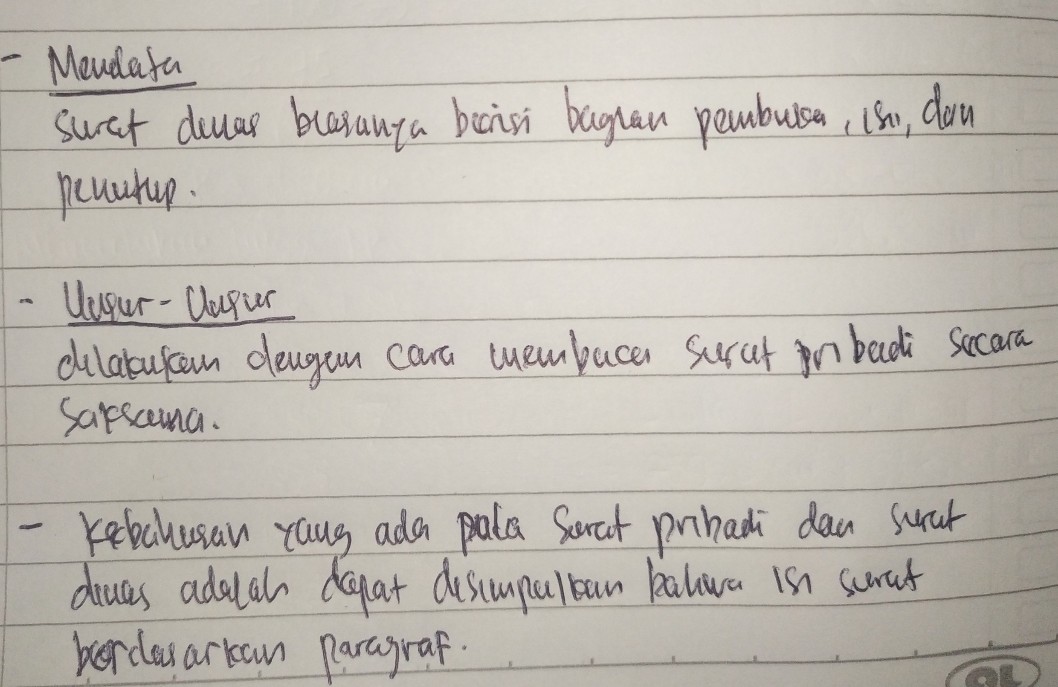 - Mendata
surat dinas biasanya berisi bagian pembuka, isi, dan
penutup.
- Unsur-Unsur
dilakukan dengan cara membaca surat pribadi secara
saksama.
- Kebahasan yang ada pada surat pribadi dan surat
dinas adalah dapat disimpulkan bahwa isi surat
berdasarkan paragraf.